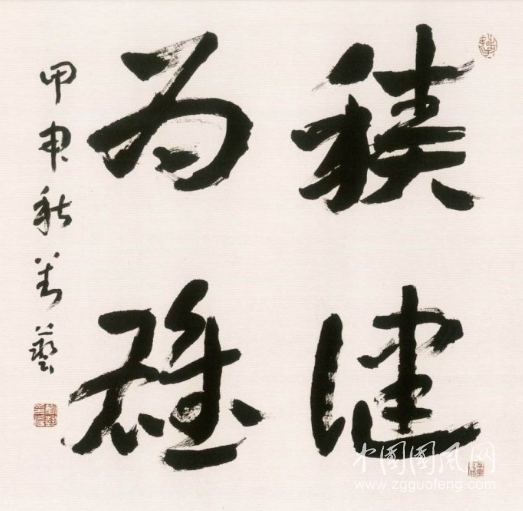 積健
为雄
甲申秋 藝
中國國風网
www.zgguofeng.com